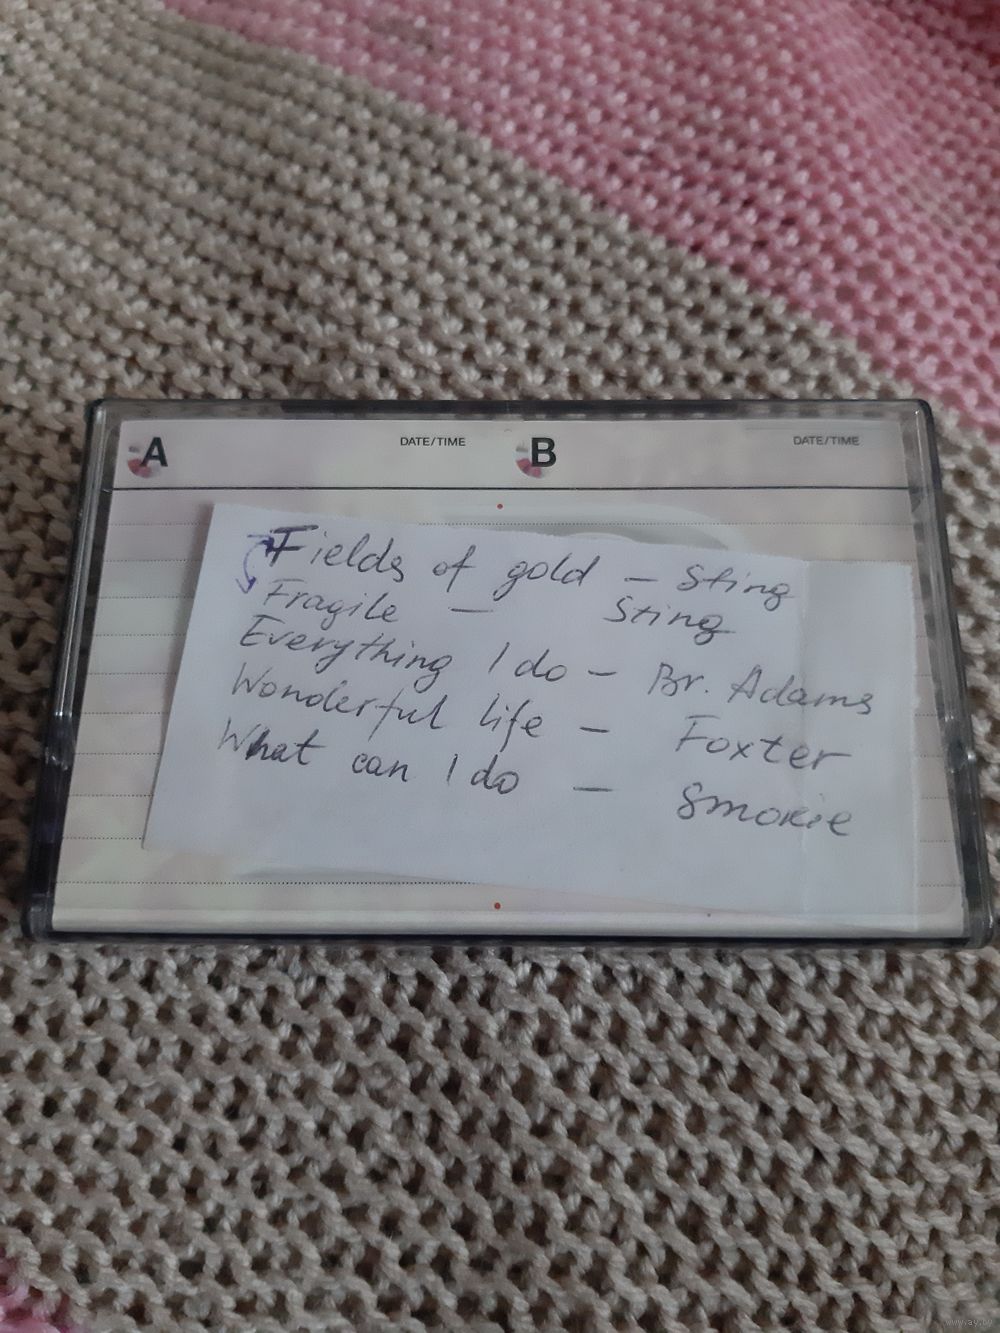 A DATE/TIME B DATE/TIME
Fields of gold — Sting
Fragile — Sting
Everything I do — Br. Adams
Wonderful life — Foxter
What can I do — Smokie
www.ay.by